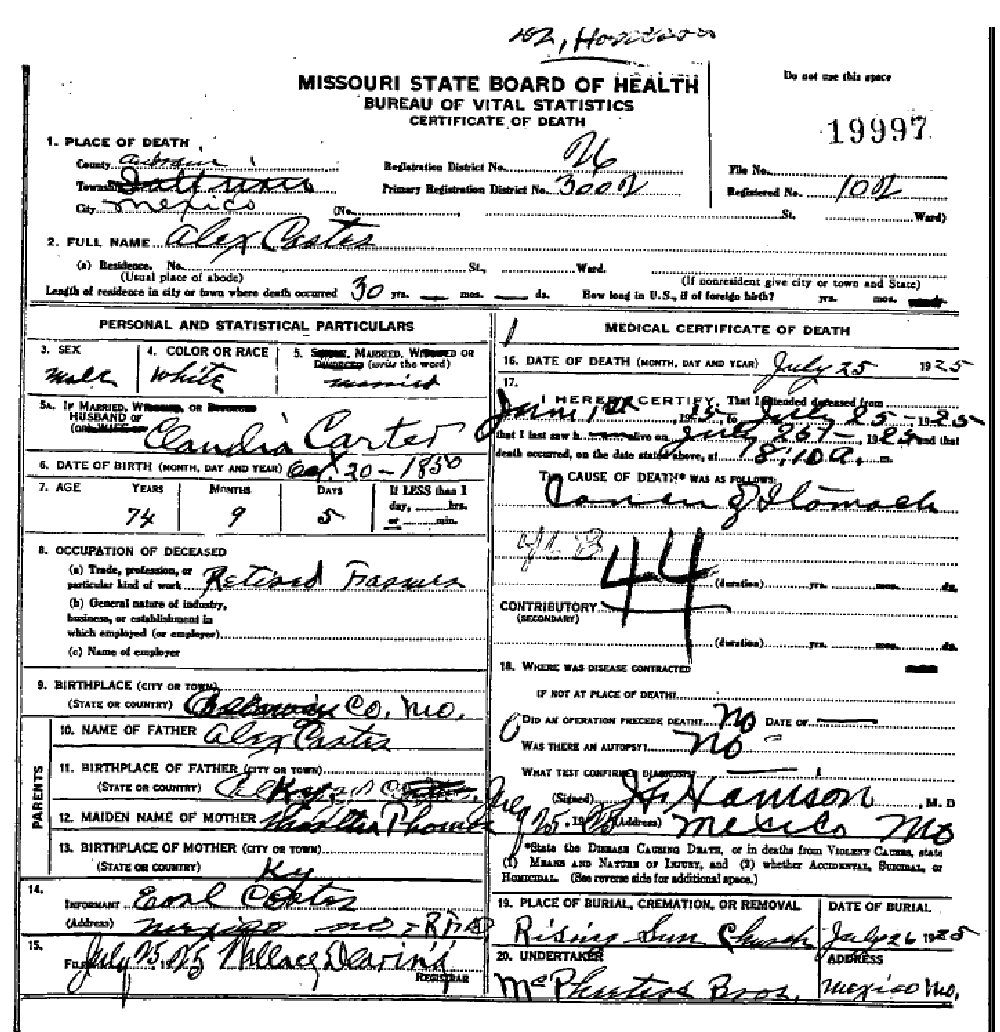 MISSOURI STATE BOARD OF HEALTH
BUREAU OF VITAL STATISTICS
CERTIFICATE OF DEATH
Do not use this space
19997
1. PLACE OF DEATH
County Audrain
Registration District No. 26
File No.
Township
Primary Registration District No. 3002
Registered No. 102
City Mexico (No. St. Ward)
2. FULL NAME Alex Carter
(a) Residence. No. St., Ward.
(Usual place of abode) (If nonresident give city or town and State)
Length of residence in city or town where death occurred 30 yrs. mos. ds. How long in U.S., if of foreign birth? yrs. mos.
PERSONAL AND STATISTICAL PARTICULARS
3. SEX 4. COLOR OR RACE 5. SINGLE, MARRIED, WIDOWED OR
DIVORCED (write the word)
Male White Married
5a. IF MARRIED, WIDOWED, OR DIVORCED
HUSBAND OF
(OR) WIFE OF Claudia Carter
6. DATE OF BIRTH (MONTH, DAY AND YEAR) Oct. 20 - 1850
7. AGE YEARS MONTHS DAYS If LESS than 1
day, hrs.
or min.
74 9 5
8. OCCUPATION OF DECEASED
(a) Trade, profession, or
particular kind of work Retired Farmer
(b) General nature of industry,
business, or establishment in
which employed (or employer)
(c) Name of employer
9. BIRTHPLACE (CITY OR TOWN)
(STATE OR COUNTRY) Co. Mo.
PARENTS
10. NAME OF FATHER Alex Carter
11. BIRTHPLACE OF FATHER (CITY OR TOWN)
(STATE OR COUNTRY) Ky
12. MAIDEN NAME OF MOTHER Martha Thomas
13. BIRTHPLACE OF MOTHER (CITY OR TOWN)
(STATE OR COUNTRY) Ky
14.
INFORMANT Earl Carter
(Address) Mexico Mo
15.
FILED July 25, 1925 Wallace Dearing
REGISTRAR
MEDICAL CERTIFICATE OF DEATH
16. DATE OF DEATH (MONTH, DAY AND YEAR) July 25 1925
17.
I HEREBY CERTIFY, That I attended deceased from
June 1st, 1925, to July 25 - 1925
that I last saw h alive on July 25 - 1925 and that
death occurred, on the date stated above, at 8:10 a. m.
THE CAUSE OF DEATH* WAS AS FOLLOWS:
Cancer of Stomach
44
(duration) yrs. mos. ds.
CONTRIBUTORY
(SECONDARY)
(duration) yrs. mos. ds.
18. WHERE WAS DISEASE CONTRACTED
IF NOT AT PLACE OF DEATH?
DID AN OPERATION PRECEDE DEATH? No DATE OF
WAS THERE AN AUTOPSY? No
WHAT TEST CONFIRMED DIAGNOSIS?
(Signed) Harrison, M. D
July 25, 1925 (Address) Mexico Mo
*State the DISEASE CAUSING DEATH, or in deaths from VIOLENT CAUSES, state
(1) MEANS AND NATURE OF INJURY, and (2) whether ACCIDENTAL, SUICIDAL, or
HOMICIDAL. (See reverse side for additional space.)
19. PLACE OF BURIAL, CREMATION, OR REMOVAL DATE OF BURIAL
Rising Sun Church July 26 1925
20. UNDERTAKER ADDRESS
Bros. Mexico Mo.